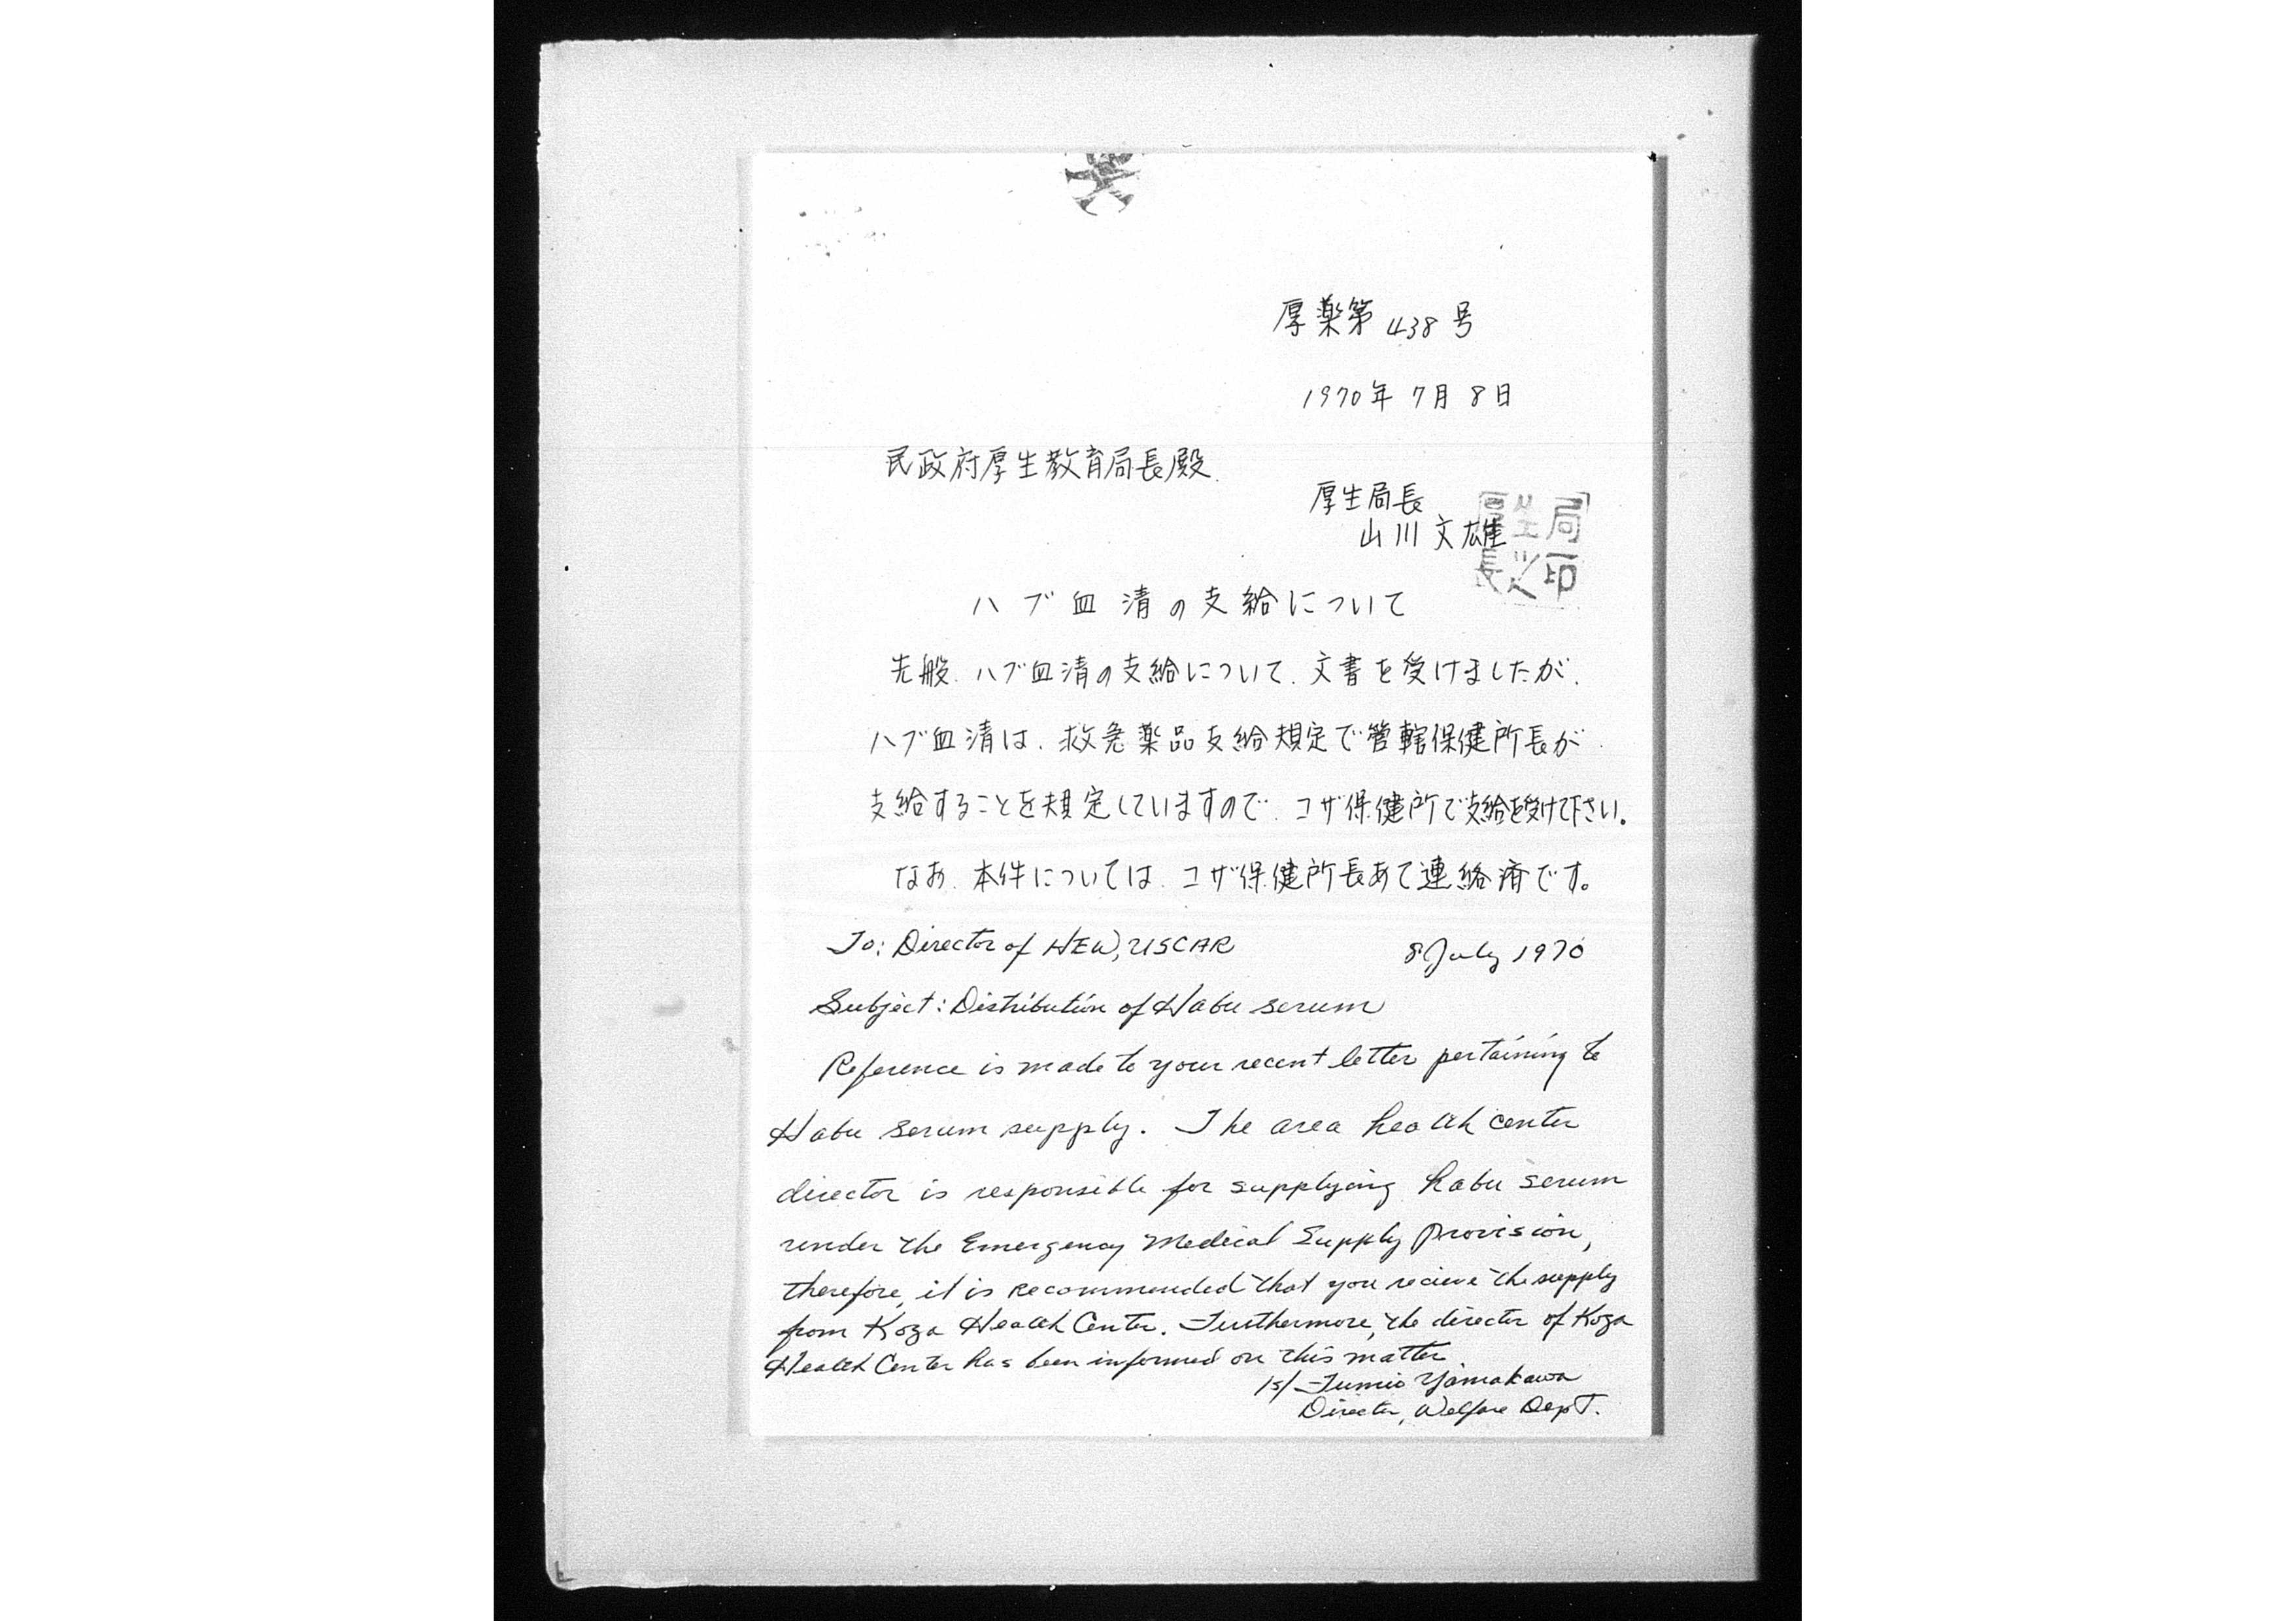 厚薬第 438 号
1970年 7月 8日
民政府厚生教育局長殿
厚生局長
山川文雄
厚生局
長之印
ハブ血清の支給について
先般、ハブ血清の支給について、文書を受けましたが、
ハブ血清は、救急薬品支給規定で管轄保健所長が
支給することを規定していますので、コザ保健所で支給を受けて下さい。
なお、本件については、コザ保健所長あて連絡済です。
To: Director of HEW, USCAR 8 July 1970
Subject: Distribution of Habu serum
Reference is made to your recent letter pertaining to
Habu serum supply. The area health center
director is responsible for supplying habu serum
under the Emergency Medical Supply Provision,
therefore, it is recommended that you recieve the supply
from Koza Health Center. Furthermore, the director of Koza
Health Center has been informed on this matter.
/s/ Fumio Yamakawa
Director, Welfare Dept.